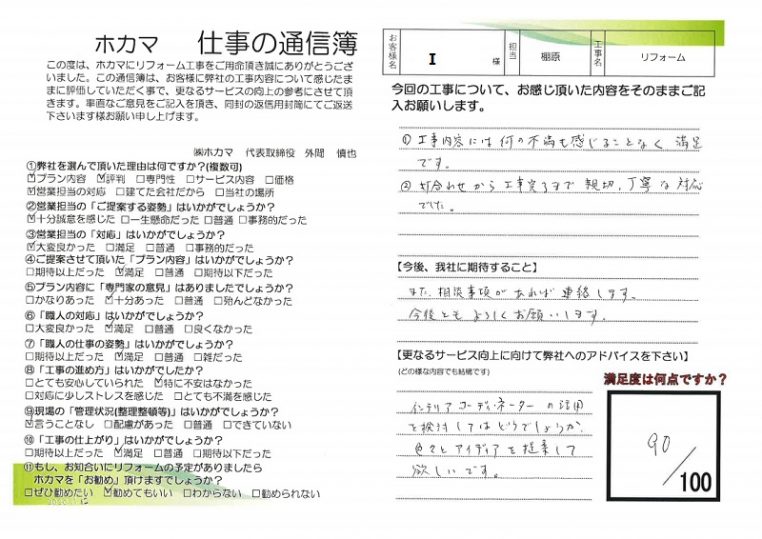 ホカマ　仕事の通信簿
この度は、ホカマにリフォーム工事をご用命頂き誠にありがとうござ
いました。この通信簿は、お客様に弊社の工事内容について感じたま
まに評価していただく事で、更なるサービスの向上の参考にさせて頂
きます。率直なご意見をご記入を頂き、同封の返信用封筒にてご返送
下さいます様お願い申し上げます。
㈱ホカマ　代表取締役　外間　慎也
①弊社を選んで頂いた理由は何ですか?(複数可)
☑プラン内容 ☑評判 □専門性 □サービス内容 □価格
☑営業担当の対応 □建てた会社だから □当社の場所
②営業担当の「ご提案する姿勢」はいかがでしょうか?
☑十分誠意を感じた □一生懸命だった □普通 □事務的だった
③営業担当の「対応」はいかがでしょうか?
☑大変良かった □満足 □普通 □事務的だった
④ご提案させて頂いた「プラン内容」はいかがでしょうか?
□期待以上だった ☑満足 □普通 □期待以下だった
⑤プラン内容に「専門家の意見」はありましたでしょうか?
□かなりあった ☑十分あった □普通 □殆んどなかった
⑥「職人の対応」はいかがでしょうか?
□大変良かった ☑満足 □普通 □良くなかった
⑦「職人の仕事の姿勢」はいかがでしょうか?
□期待以上だった ☑満足 □普通 □雑だった
⑧「工事の進め方」はいかがでしたか?
□とても安心していられた ☑特に不安はなかった
□対応に少しストレスを感じた □とても不満を感じた
⑨現場の「管理状況(整理整頓等)」はいかがでしょうか?
☑言うことなし □配慮があった □普通 □できていない
⑩「工事の仕上がり」はいかがでしょうか?
□期待以上だった ☑満足 □普通 □期待以下だった
⑪もし、お知合いにリフォームの予定がありましたら
ホカマを「お勧め」頂けますでしょうか?
□ぜひ勧めたい ☑勧めてもいい □わからない □勧められない
お客様名 I 様 担当 棚原 工事名 リフォーム
今回の工事について、お感じ頂いた内容をそのままご記
入お願いします。
①工事内容には何の不満も感じることなく満足
です。
②打合わせから工事完了まで親切、丁寧な対応
でした。
【今後、我社に期待すること】
また、相談事項があれば連絡します。
今後ともよろしくお願いします。
【更なるサービス向上に向けて弊社へのアドバイスを下さい】
(どの様な内容でも結構です)
インテリアコーディネーターの活用
を検討してはどうでしょうか。
色々とアイディアを提案して
欲しいです。
満足度は何点ですか?
90/100